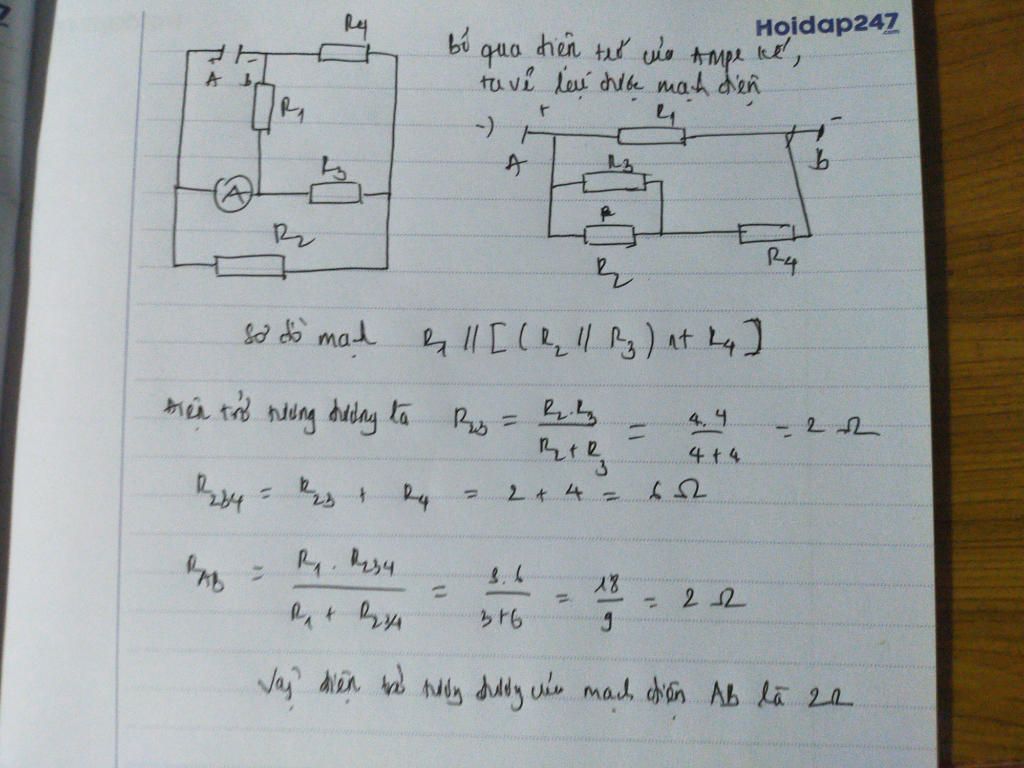 Hoidap247
R4
bỏ qua điện trở của Ampe kế,
ta vẽ lại được mạch điện
+ A - B
R1
A
R3
R2
-) + R1 -
A B
R3
R
R2 R4
Sơ đồ mạch R1 // [(R2 // R3) nt R4]
Điện trở tương đương là R23 = R2.R3 / R2 + R3 = 4.4 / 4+4 = 2 Ω
R234 = R23 + R4 = 2 + 4 = 6 Ω
RAB = R1 . R234 / R1 + R234 = 3.6 / 3+6 = 18 / 9 = 2 Ω
Vậy điện trở tương đương của mạch điện AB là 2Ω